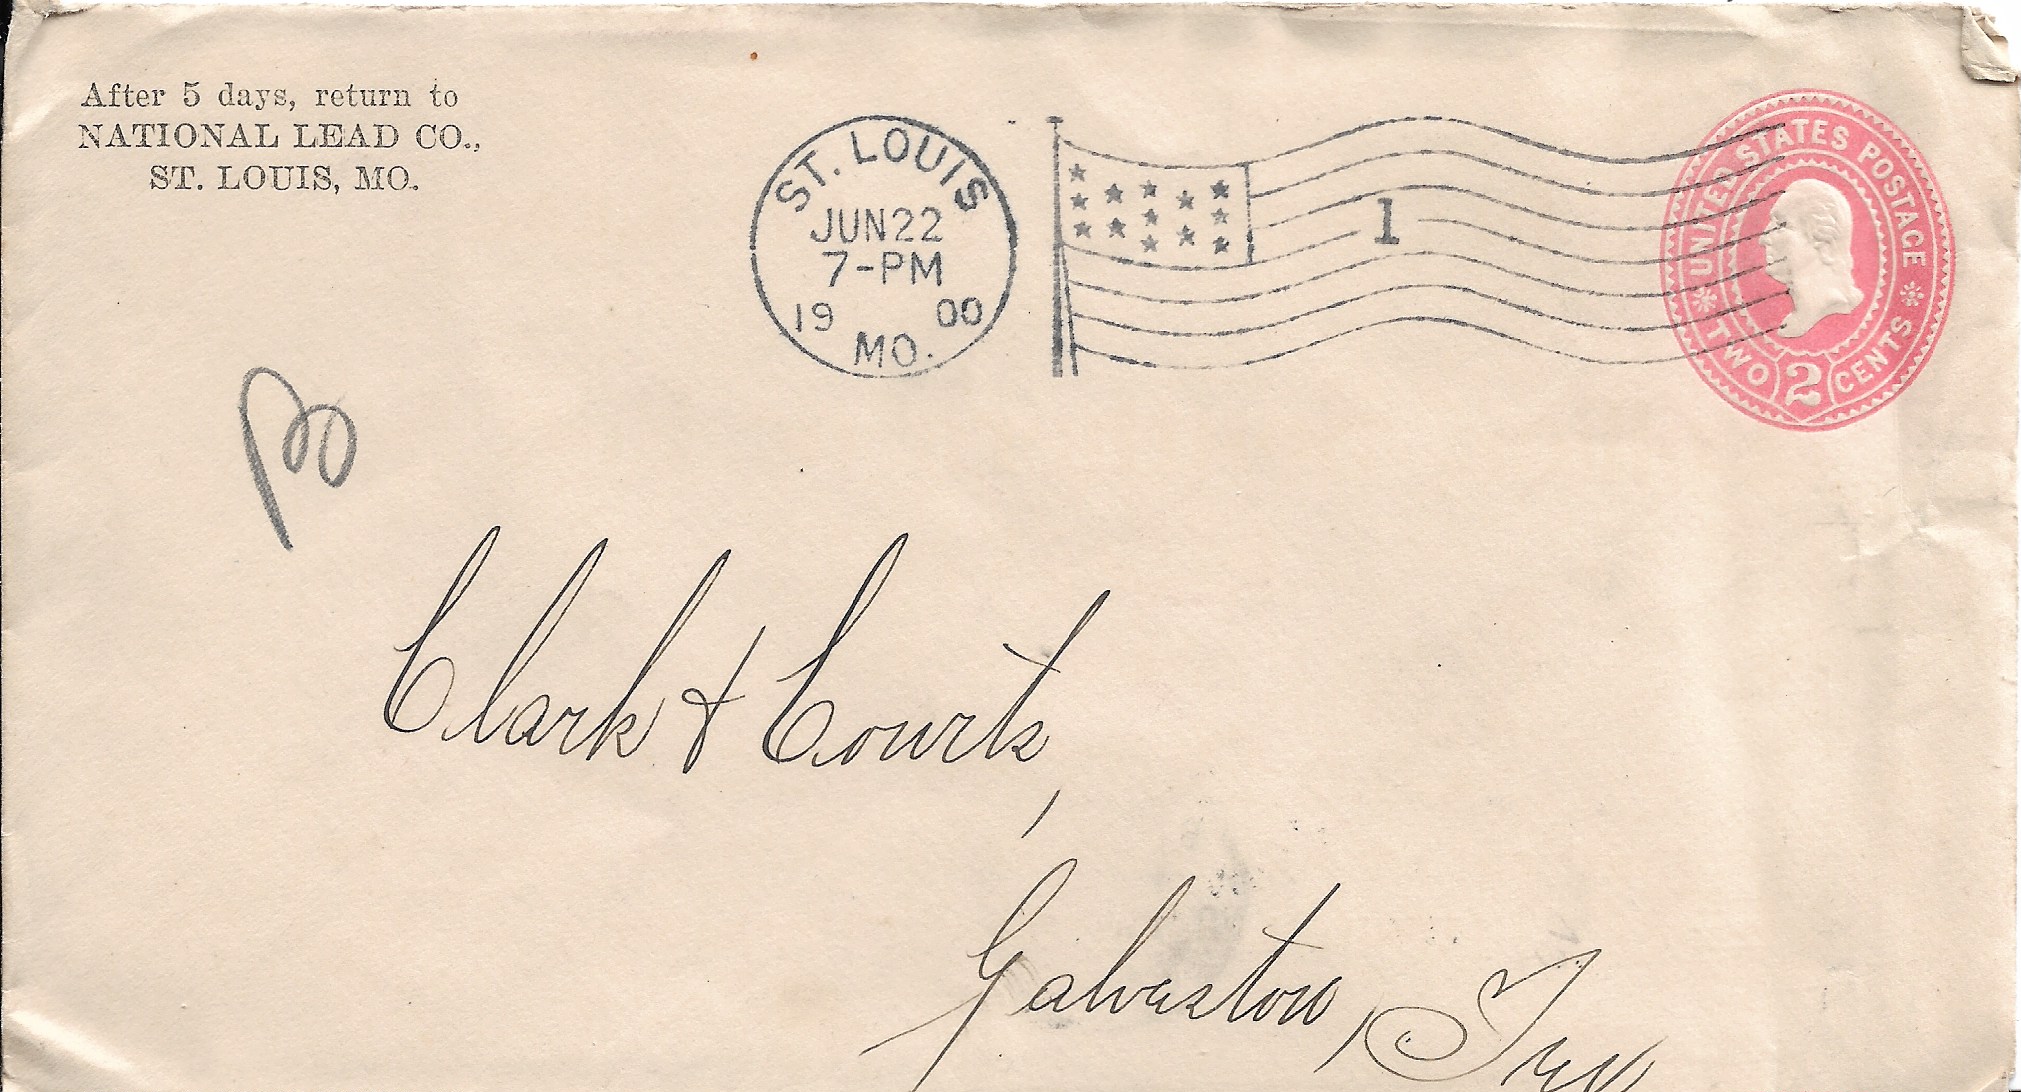 After 5 days, return to
NATIONAL LEAD CO.,
ST. LOUIS, MO.
ST. LOUIS
JUN 22
7-PM
19 00
MO.
1
UNITED STATES POSTAGE
TWO 2 CENTS
Clark & Courts,
Galveston, Tex